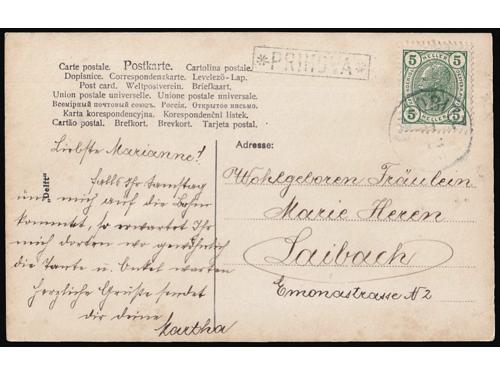 Carte postale. Postkarte. Cartolina postale.
Dopisnice. Correspondenzkarte. Levelező-Lap.
Post card. Weltpostverein. Briefkaart.
Union postale universelle. Unione postale universale.
Всемірный почтовый союзъ. Россія. Открытое письмо.
Karta korespondencyjna. Korespondenční listek.
Cartão postal. Brefkort. Brevkort. Tarjeta postal.
*PRIMOVA*
5 HELLER 5
5 HELLER 5
Liebste Marianne!
falls Ihr Samstag
und mich auf die Bahn
kommt, so erwartet Ihr
mich dorten wo gewöhnlich
die Tante u. Onkel warten
herzliche Grüße sendet
dir deine
Martha
"Delft"
Adresse:
Wohlgeboren Fräulein
Marie Heren
Laibach
Emonastrasse N 2